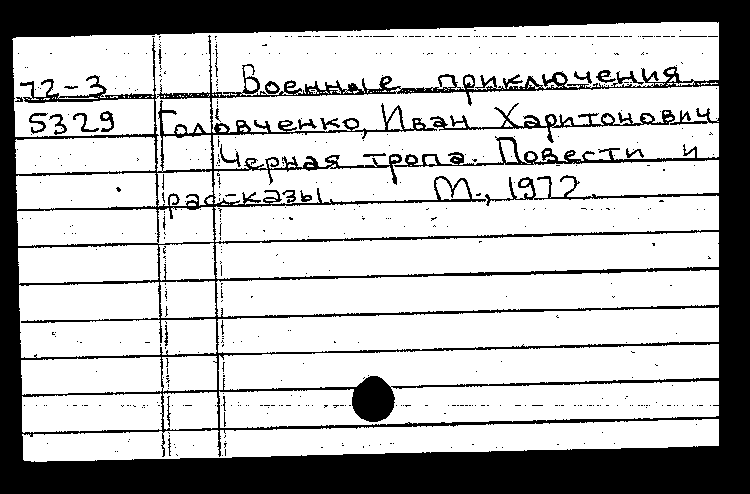 72-3 Военные приключения.
5329 Головченко, Иван Харитонович.
Черная тропа. Повести и
рассказы. М., 1972.